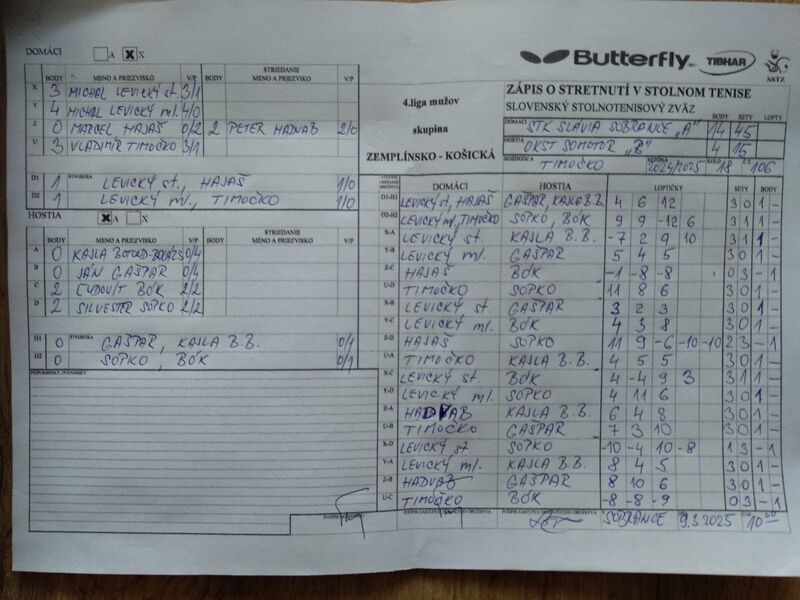 DOMÁCI A X X
Butterfly TIBHAR SSTZ
BODY MENO A PRIEZVISKO V/P BODY STRIEDANIE MENO A PRIEZVISKO V/P
X 3 MICHAL LEVICKÝ st. 3/1
Y 4 MICHAL LEVICKÝ ml. 4/0
Z 0 MARCEL HAJAŠ 0/2 2 PETER HADVAB 2/0
U 3 VLADIMÍR TIMOČKO 3/1
D1 ŠTVORHRA 1 LEVICKÝ st., HAJAŠ 1/0
D2 1 LEVICKÝ ml., TIMOČKO 1/0
HOSTIA X A X
BODY MENO A PRIEZVISKO V/P BODY STRIEDANIE MENO A PRIEZVISKO V/P
A 0 KAJLA 0/4
B 0 JÁN GAŠPAR 0/4
C 2 ĽUDOVÍT BÓK 2/2
D 2 SILVESTER SOPKO 2/2
H1 ŠTVORHRA 0 GAŠPAR, KAJLA B.B. 0/1
H2 0 SOPKO, BÓK 0/1
PRIPOMIENKY, POZNÁMKY
4.liga mužov
skupina
ZEMPLÍNSKO - KOŠICKÁ
ZÁPIS O STRETNUTÍ V STOLNOM TENISE
SLOVENSKÝ STOLNOTENISOVÝ ZVÄZ BODY SETY LOPTY
DOMÁCI STK SLAVIA SOBRANCE „A" 14 45
HOSTIA OKST SOMOTOR „B" 4 15
ROZHODCA TIMOČKO SEZÓNA 2024/2025 KOLO 18 Č.Z. 106
DOMÁCI HOSTIA LOPTIČKY SETY BODY
D1-H1 LEVICKÝ st, HAJAŠ GAŠPAR, KAJLA B.B. 4 6 12 3 0 1 -
D2-H2 LEVICKÝ ml, TIMOČKO SOPKO, BÓK 9 9 -12 6 3 1 1 -
X-A LEVICKÝ st. KAJLA B.B. -7 2 9 10 3 1 1 -
Y-B LEVICKÝ ml. GAŠPAR 5 4 5 3 0 1 -
Z-C HAJAŠ BÓK -1 -8 -8 0 3 - 1
U-D TIMOČKO SOPKO 11 8 6 3 0 1 -
X-B LEVICKÝ st. GAŠPAR 3 2 3 3 0 1 -
Y-C LEVICKÝ ml. BÓK 4 3 8 3 0 1 -
Z-D HAJAŠ SOPKO 11 9 -6 -10 -10 2 3 - 1
U-A TIMOČKO KAJLA B.B. 4 5 5 3 0 1 -
X-C LEVICKÝ st. BÓK 4 -4 9 3 3 1 1 -
Y-D LEVICKÝ ml. SOPKO 4 11 6 3 0 1 -
Z-A HADVAB KAJLA B.B. 6 4 8 3 0 1 -
U-B TIMOČKO GAŠPAR 7 3 10 3 0 1 -
X-D LEVICKÝ st. SOPKO -10 -4 10 -8 1 3 - 1
Y-A LEVICKÝ ml. KAJLA B.B. 8 4 5 3 0 1 -
Z-B HADVAB GAŠPAR 8 10 6 3 0 1 -
U-C TIMOČKO BÓK -8 -8 -9 0 3 - 1
SOBRANCE 9.3.2025 10⁰⁰